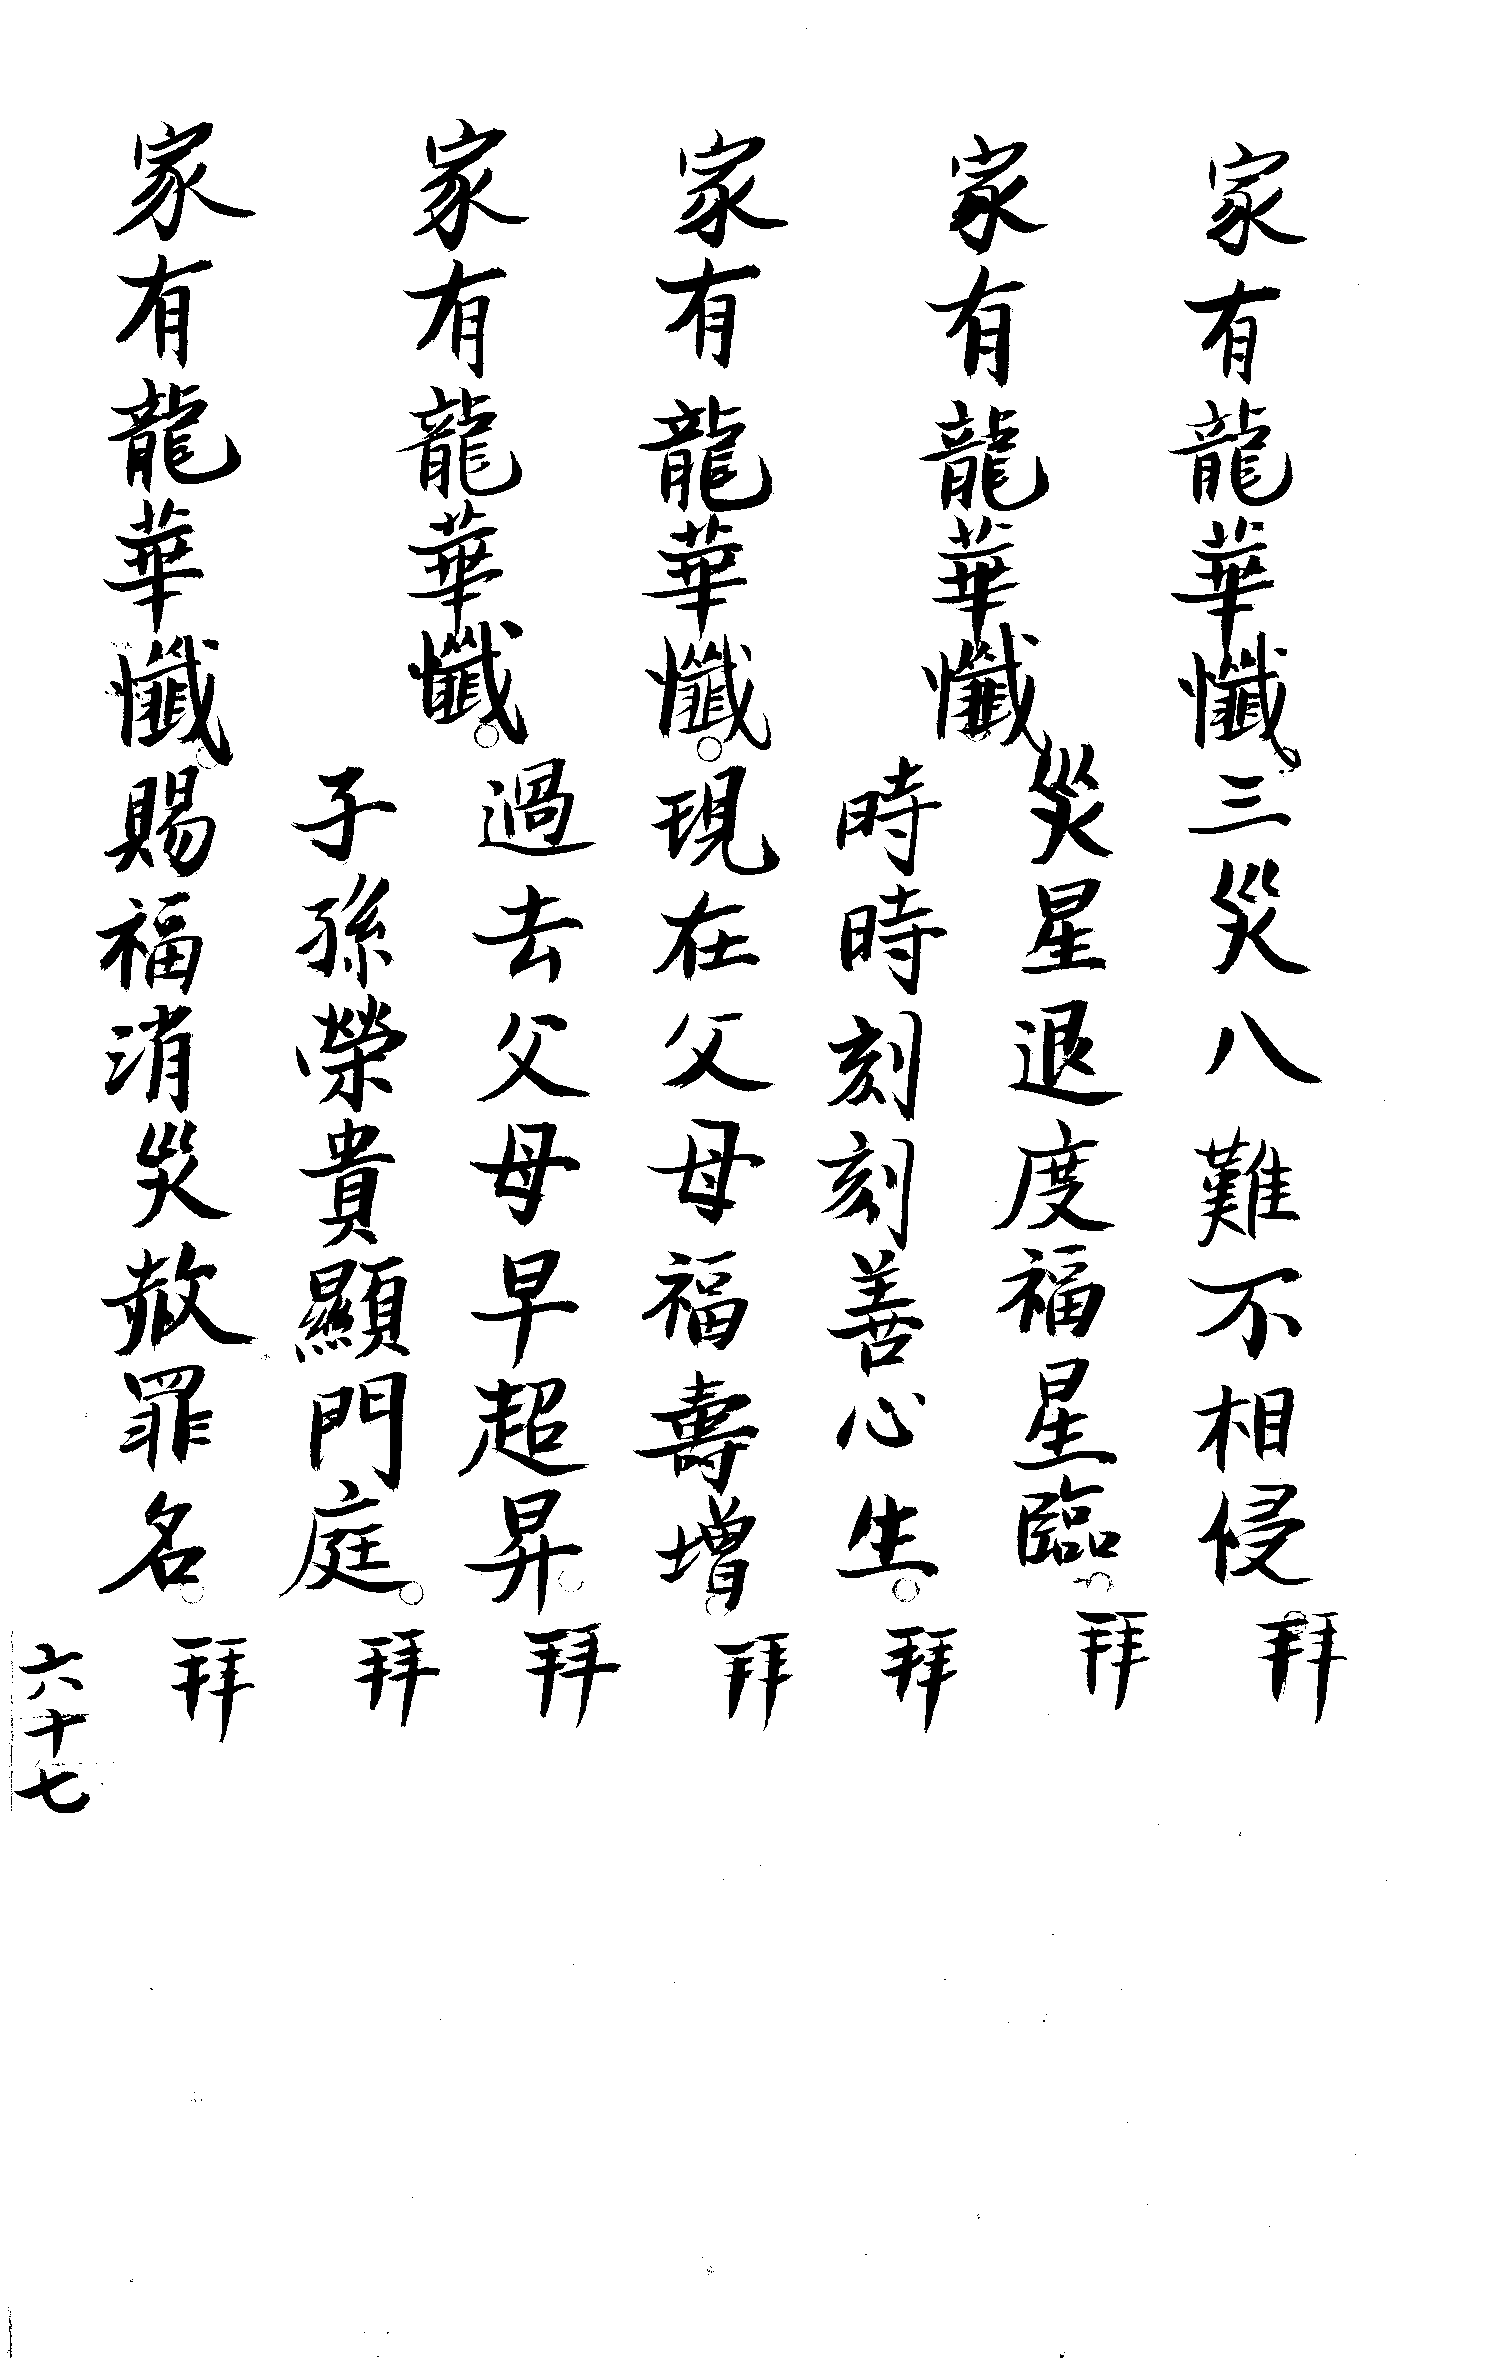 家有龍華懺。三災八難不相侵。拜
家有龍華懺。災星退度福星臨。拜
時時刻刻善心生。拜
家有龍華懺。現在父母福壽增。拜
家有龍華懺。過去父母早超昇。拜
子孫榮貴顯門庭。拜
家有龍華懺。賜福消災赦罪名。拜
六十七